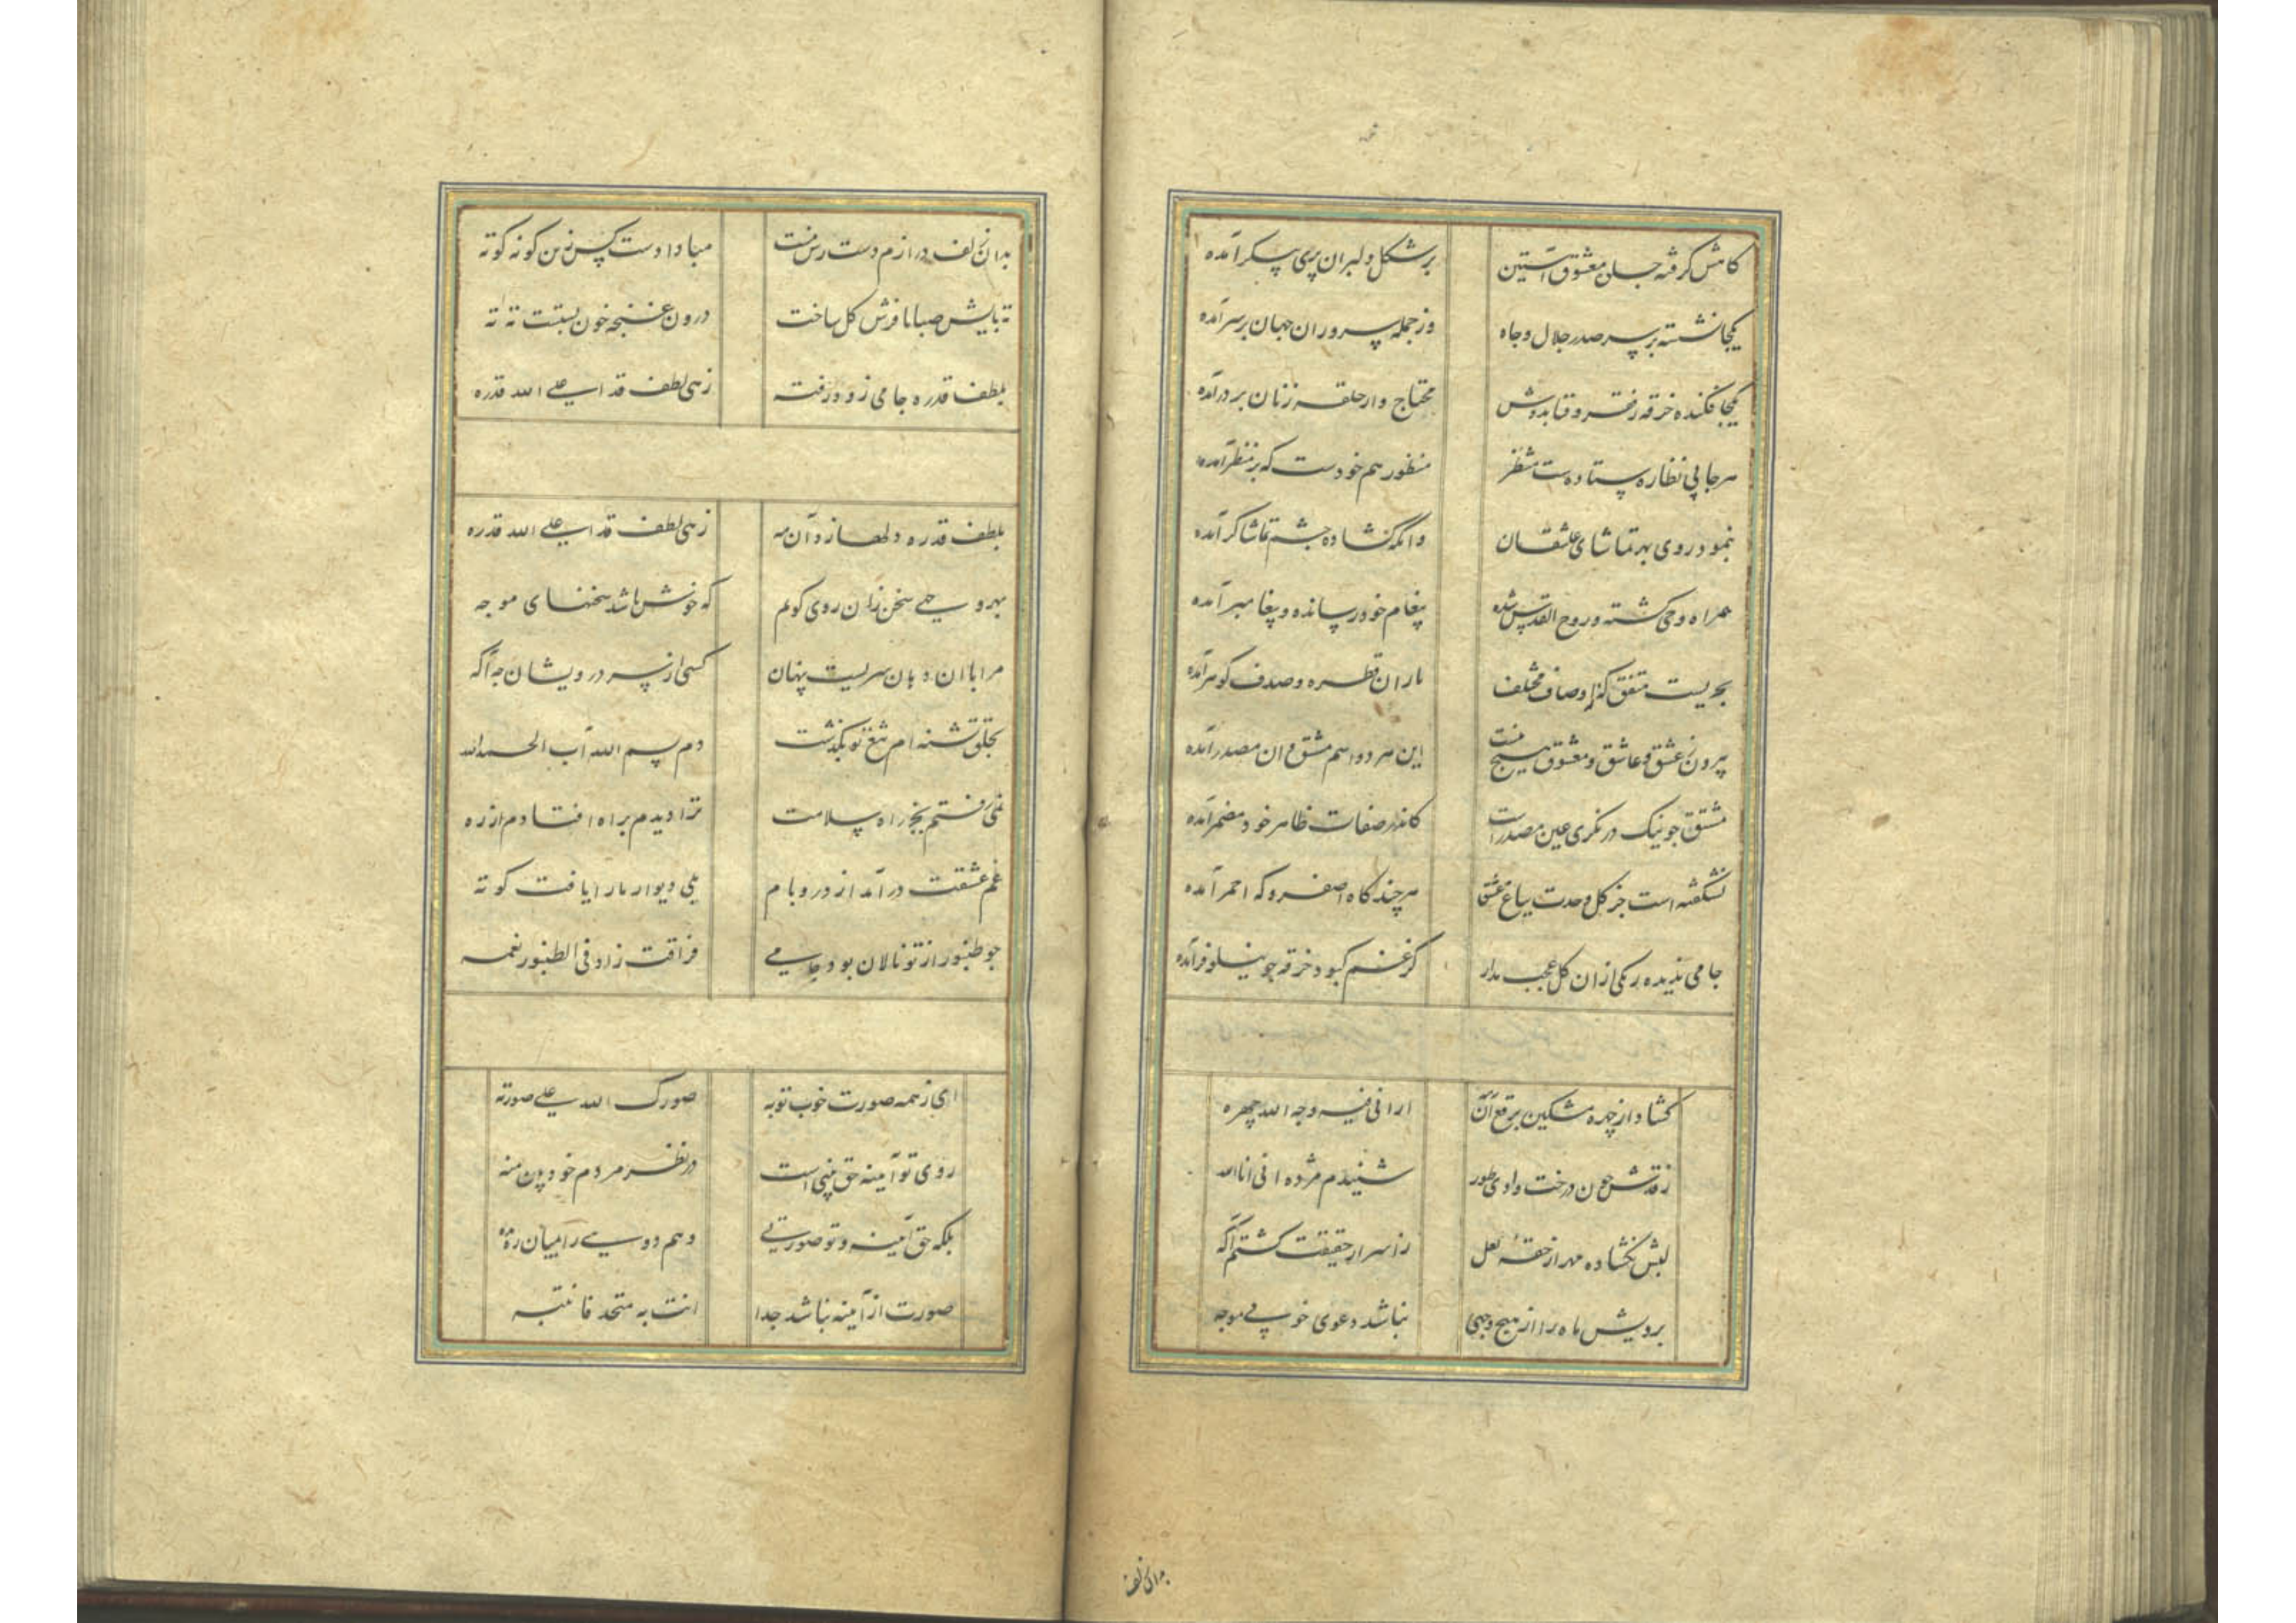 کامش گرفته جسان معشوق آستین بر شکل دلبران پری پیکر آمده
یکجا نشسته بر سر صدر جلال و جاه وز جمله سروران جهان بر سر آمده
یکجا فکنده خرقه ز فقر و قبا بدوش محتاج وار حلقه زنان بر در آمده
هر جا پی نظاره ستاده ست منتظر منظور هم خودست که بر منظر آمده
نمود روی بهر تماشای عاشقان وانگه گشاده چشم تماشاگر آمده
همراه وحی گشته و روح القدس شده پیغام خود رسانده و پیغامبر آمده
بحریست متفق که ز اوصاف مختلف باران و قطره و صدف و گوهر آمده
بیرون ز عشق و عاشق و معشوق هیچ نیست این هر دو اسم مشتق و آن مصدر آمده
مشتق چو نیک در نگری عین مصدر است کاندر صفات ظاهر خود مضمر آمده
نشکفته است جز گل وحدت بباغ عشق هر چند گاه اصفر و گه احمر آمده
جامی ندیده رنگی از آن گل عجب مدار گر غنم کبود خرقه چو نیلوفر آمده
گشاد از چهره مشکین برقع آن مه ارانی فیه وجه الله جهره
ز قدش چون درخت وادی طور شنیدم مژده انی انا الله
لبش بگشاده مهر از حقهٔ لعل ز اسرار حقیقت گشتم آگه
برویش ماه را از هیچ وجهی نباشد دعوی خوبی موجه
بدان زلف
بدان زلف درازم دست رس نیست مبادا دست کس زین گونه کوته
ته پایش صبا تا فرش گل ساخت درون غنچه خون بستست ته ته
بلطف قدره جامی ز ره رفت زهی لطف قد اعلی الله قدره
بلطف قدره دلها زد آن مه زهی لطف قد اعلی الله قدره
بهر وجهی سخن زان روی گویم که خوش باشد سخنهای موجه
مرا با آن دهان سریست پنهان کسی از سر درویشان چه آگه
بحلق تشنه ام تیغ تو بگذشت دم بسم الله آب الحمد لله
نمی رفتم بجز راه سلامت ترا دیدم براه افتادم از ره
غم عشقت در آمد از در و بام بلی دیوار ما را یافت کوته
چو طنبور از تو نالان بود جامی فراقت زاد فی الطنبور نغمه
ای ز همه صورت خوب تو به صورک الله علی صورته
روی تو آینه حق بینی است در نظر مردم خود بین منه
بلکه حق آینه و تو صورتی وهم دویی را بمیان ره مده
صورت از آینه نباشد جدا انت به متحد فانتبه